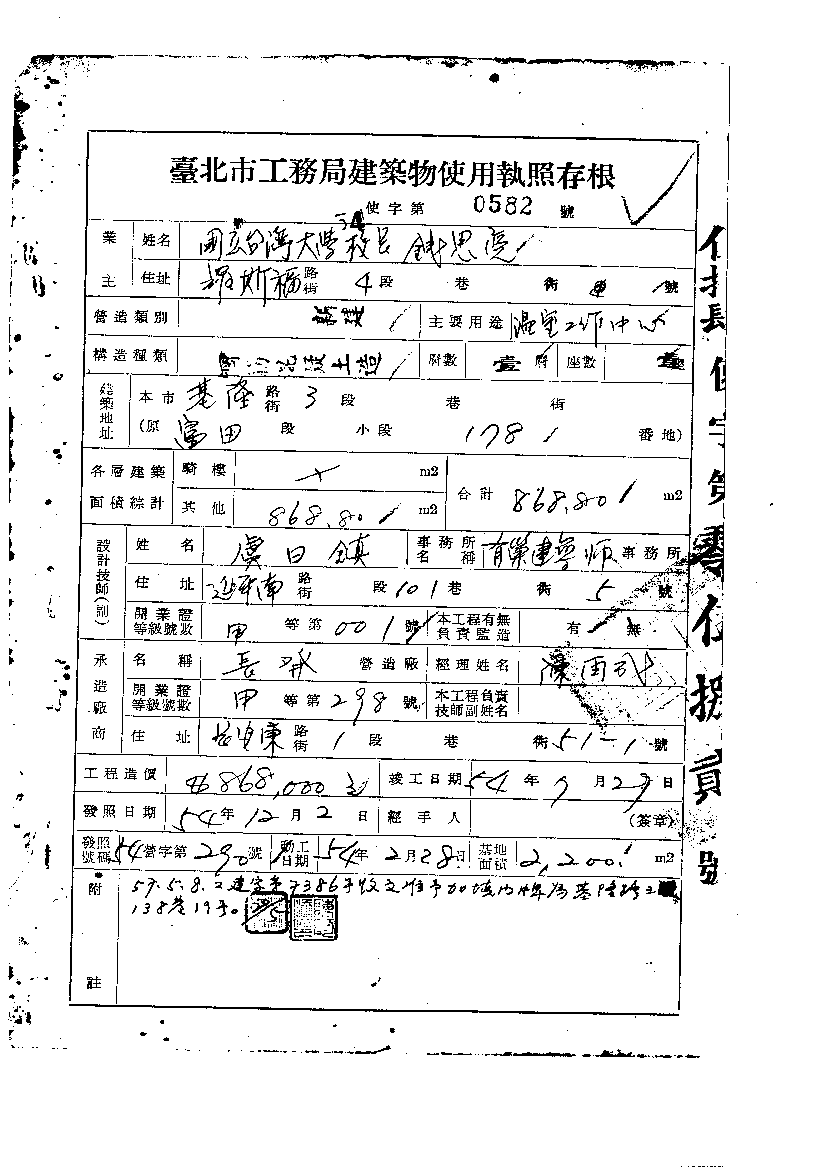 臺北市工務局建築物使用執照存根
54 使字第 0582 號
業主 姓名 國立台灣大學校長 錢思亮
住址 羅斯福 路街 4 段 巷 街 號
營造類別 新建 主要用途 溫室工作中心
構造種類 混凝土造 層數 壹 層 座數 壹
建築地址 本市 基隆 路街 3 段 巷 街
(原 富田 段 小段 178 番地)
各層建築面積綜計 騎樓 m2 合計 868.80 m2
其他 868.80 m2
設計技師(副) 姓名 虞曰鎮 事務所名稱 有巢建築師 事務所
住址 延平南 路街 段 101 巷 街 5 號
開業證等級號數 甲 等第 001 號 本工程有無負責監造 有 無
承造廠商 名稱 長 營造廠 經理姓名 陳
開業證等級號數 甲 等第 298 號 本工程負責技師副姓名
住址 東 路街 1 段 巷 街 51-1 號
工程造價 868,000 元 竣工日期 54 年 7 月 29 日
發照日期 54 年 12 月 2 日 經手人 (簽章)
發照號碼 54 營字第 290 號 動工日期 54 年 2 月 28 日 基地面積 2,200 m2
附註 59.5.8. 建字第7386
138巷19号。
使字第零伍捌貳號